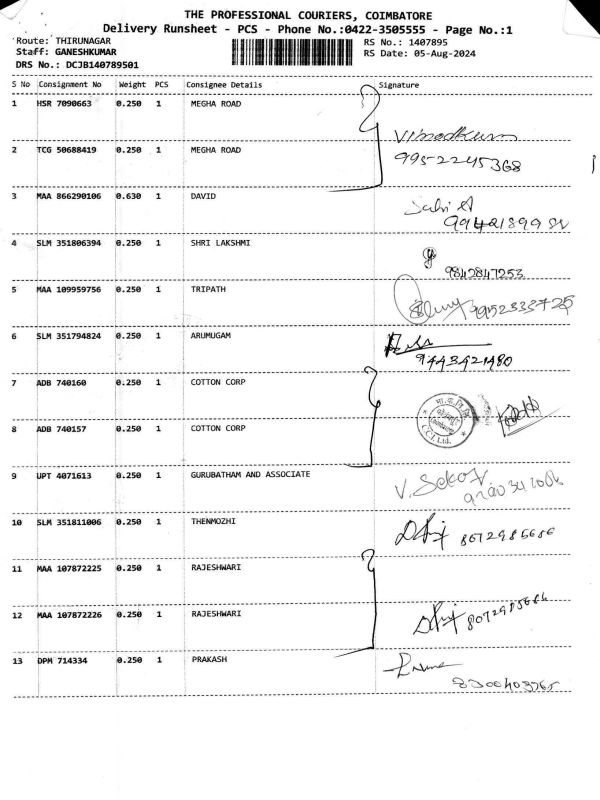 THE PROFESSIONAL COURIERS, COIMBATORE
Delivery Runsheet - PCS - Phone No.:0422-3505555 - Page No.:1
Route: THIRUNAGAR
Staff: GANESHKUMAR
DRS No.: DCJB140789501
RS No.: 1407895
RS Date: 05-Aug-2024
S No Consignment No Weight PCS Consignee Details Signature
1 HSR 7090663 0.250 1 MEGHA ROAD
2 TCG 50688419 0.250 1 MEGHA ROAD
9952245368
3 MAA 866290106 0.630 1 DAVID
4 SLM 351806394 0.250 1 SHRI LAKSHMI
9842847253
5 MAA 109959756 0.250 1 TRIPATH
9952333725
6 SLM 351794824 0.250 1 ARUMUGAM
9443421480
7 ADB 740160 0.250 1 COTTON CORP
8 ADB 740157 0.250 1 COTTON CORP
CCI Ltd.
9 UPT 4071613 0.250 1 GURUBATHAM AND ASSOCIATE
10 SLM 351811006 0.250 1 THENMOZHI
8072985686
11 MAA 107872225 0.250 1 RAJESHWARI
12 MAA 107872226 0.250 1 RAJESHWARI
13 DPM 714334 0.250 1 PRAKASH